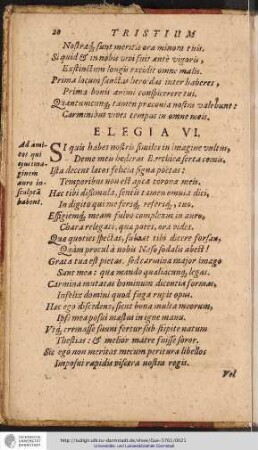 20 TRISTIUM
Nostraq́; sunt meritis ora minora tuis.
Si quid & in nobis vivi fuit ante vigoris,
Exstinctum longis excidit omne malis.
Prima locum sanctas heroidas inter haberes,
Prima bonis animi conspicerere tui.
Quantumcunq́; tamen præconia nostra valebunt:
Carminibus vives tempus in omne meis.
ELEGIA VI.
Ad amicos qui ejus imaginem auro insculptā habent.
SI quis habes nostris similes in imagine vultus,
Deme meu hederas Bacchica serta comis,
Ista decent lætos felicia signa poëtas:
Temporibus non est apta corona meis.
Hæc tibi dissimula, sentis tamen omnia dici,
In digito qui me fersq́; refersq́; tuo,
Effigiemq́; meam fulvo complexus in auro,
Chara relegati, quæ potes, ora vides.
Quæ quoties spectas, subeat tibi dicere forsan,
Quàm procul à nobis Naso sodalis abest!
Grata tua est pietas, sed carmina major imago
Sunt mea: quæ mando qualiacunq́; legas.
Carmina mutatas hominum dicentia formas,
Infelix domini quod fuga rupit opus.
Hæc ego discedens, sicut bona multa meorum,
Ipse mea posui mæstus in igne manu.
Utq́; cremasse suum fertur sub stipite natum
Thestias: & melior matre fuisse soror.
Sic ego non meritos mecum peritura libellos
Imposui rapidis viscera nostra rogis.
Vel